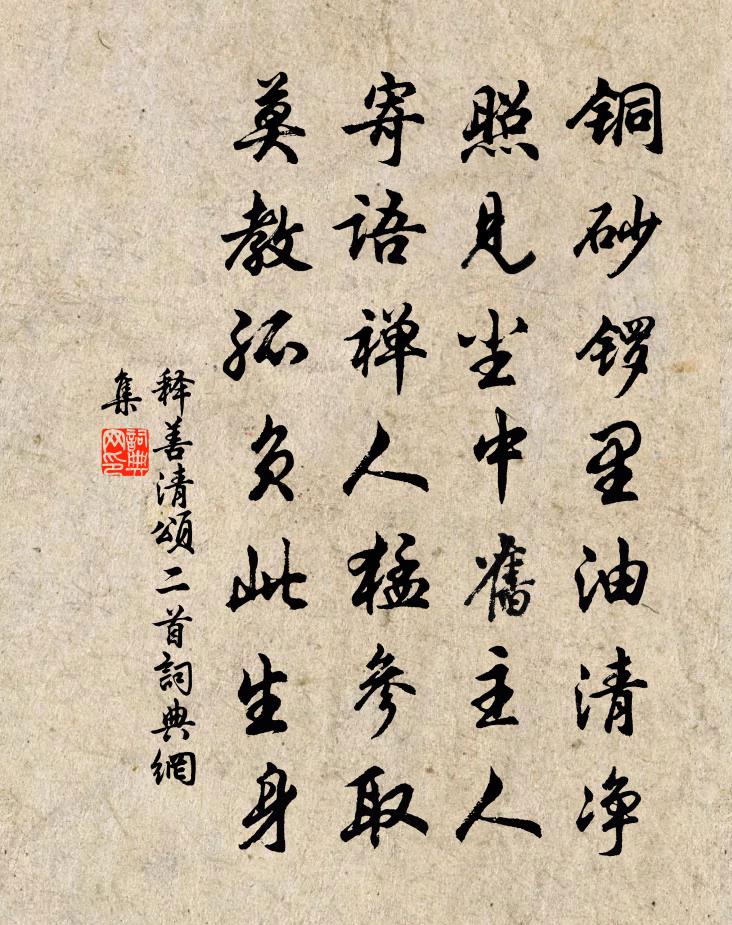 铜砂锣里油清净
照见坐中舊主人
寄语禅人猛参取
莫教孤负此生身
释善清頌二首詞典網
集
詞典
网印